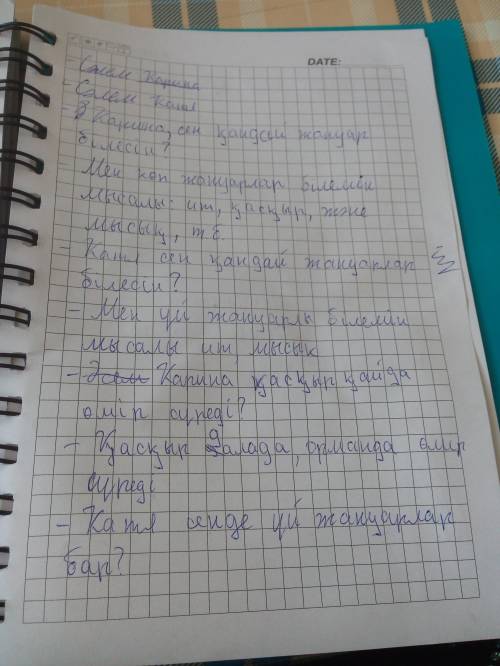 DATE:
- Сәлем Карина
- Сәлем Катя
- Карина, сен қандай жануар
білесің?
- Мен көп жануарлар білемін
мысалы: ит, қасқыр, және
мысық, т.б.
- Катя сен қандай жануарлар
білесің?
- Мен үй жануарлы білемін
мысалы ит, мысық
- Карина қасқыр қайда
өмір сүреді?
- Қасқыр далада, орманда өмір
сүреді
- Катя сенде үй жануарлар
бар?